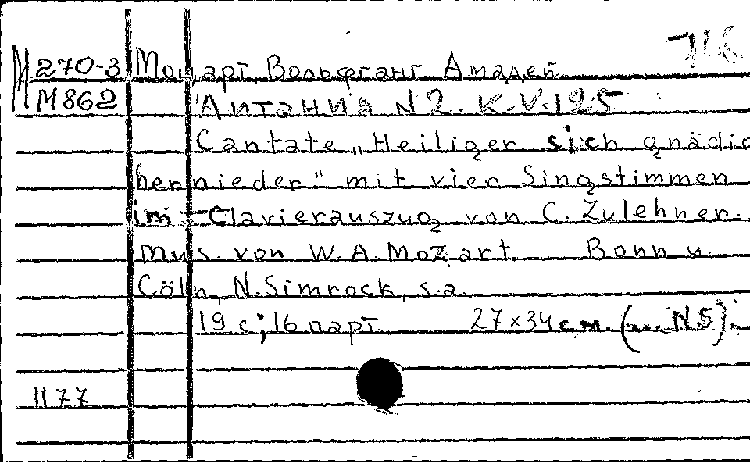 М270-3 Моцарт, Вольфганг Амадей
М862 Литания N 2. K.V.125
Cantate „Heiliger sieh gnädig
hernieder" mit vier Singstimmen
im Clavierauszug von C. Zulehner.
Mus. von W.A. Mozart. Bonn u.
Cöln, N. Simrock, s.a.
19 с; 16 парт. 27×34 см. N5)
1177